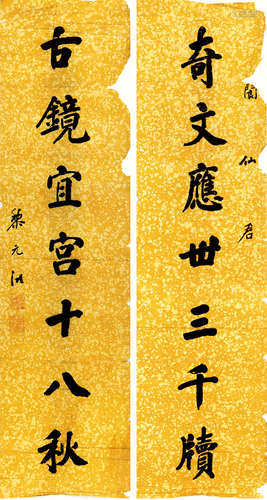 奇文應世三千牘
仙君
古鏡宜宮十八秋
黎元洪